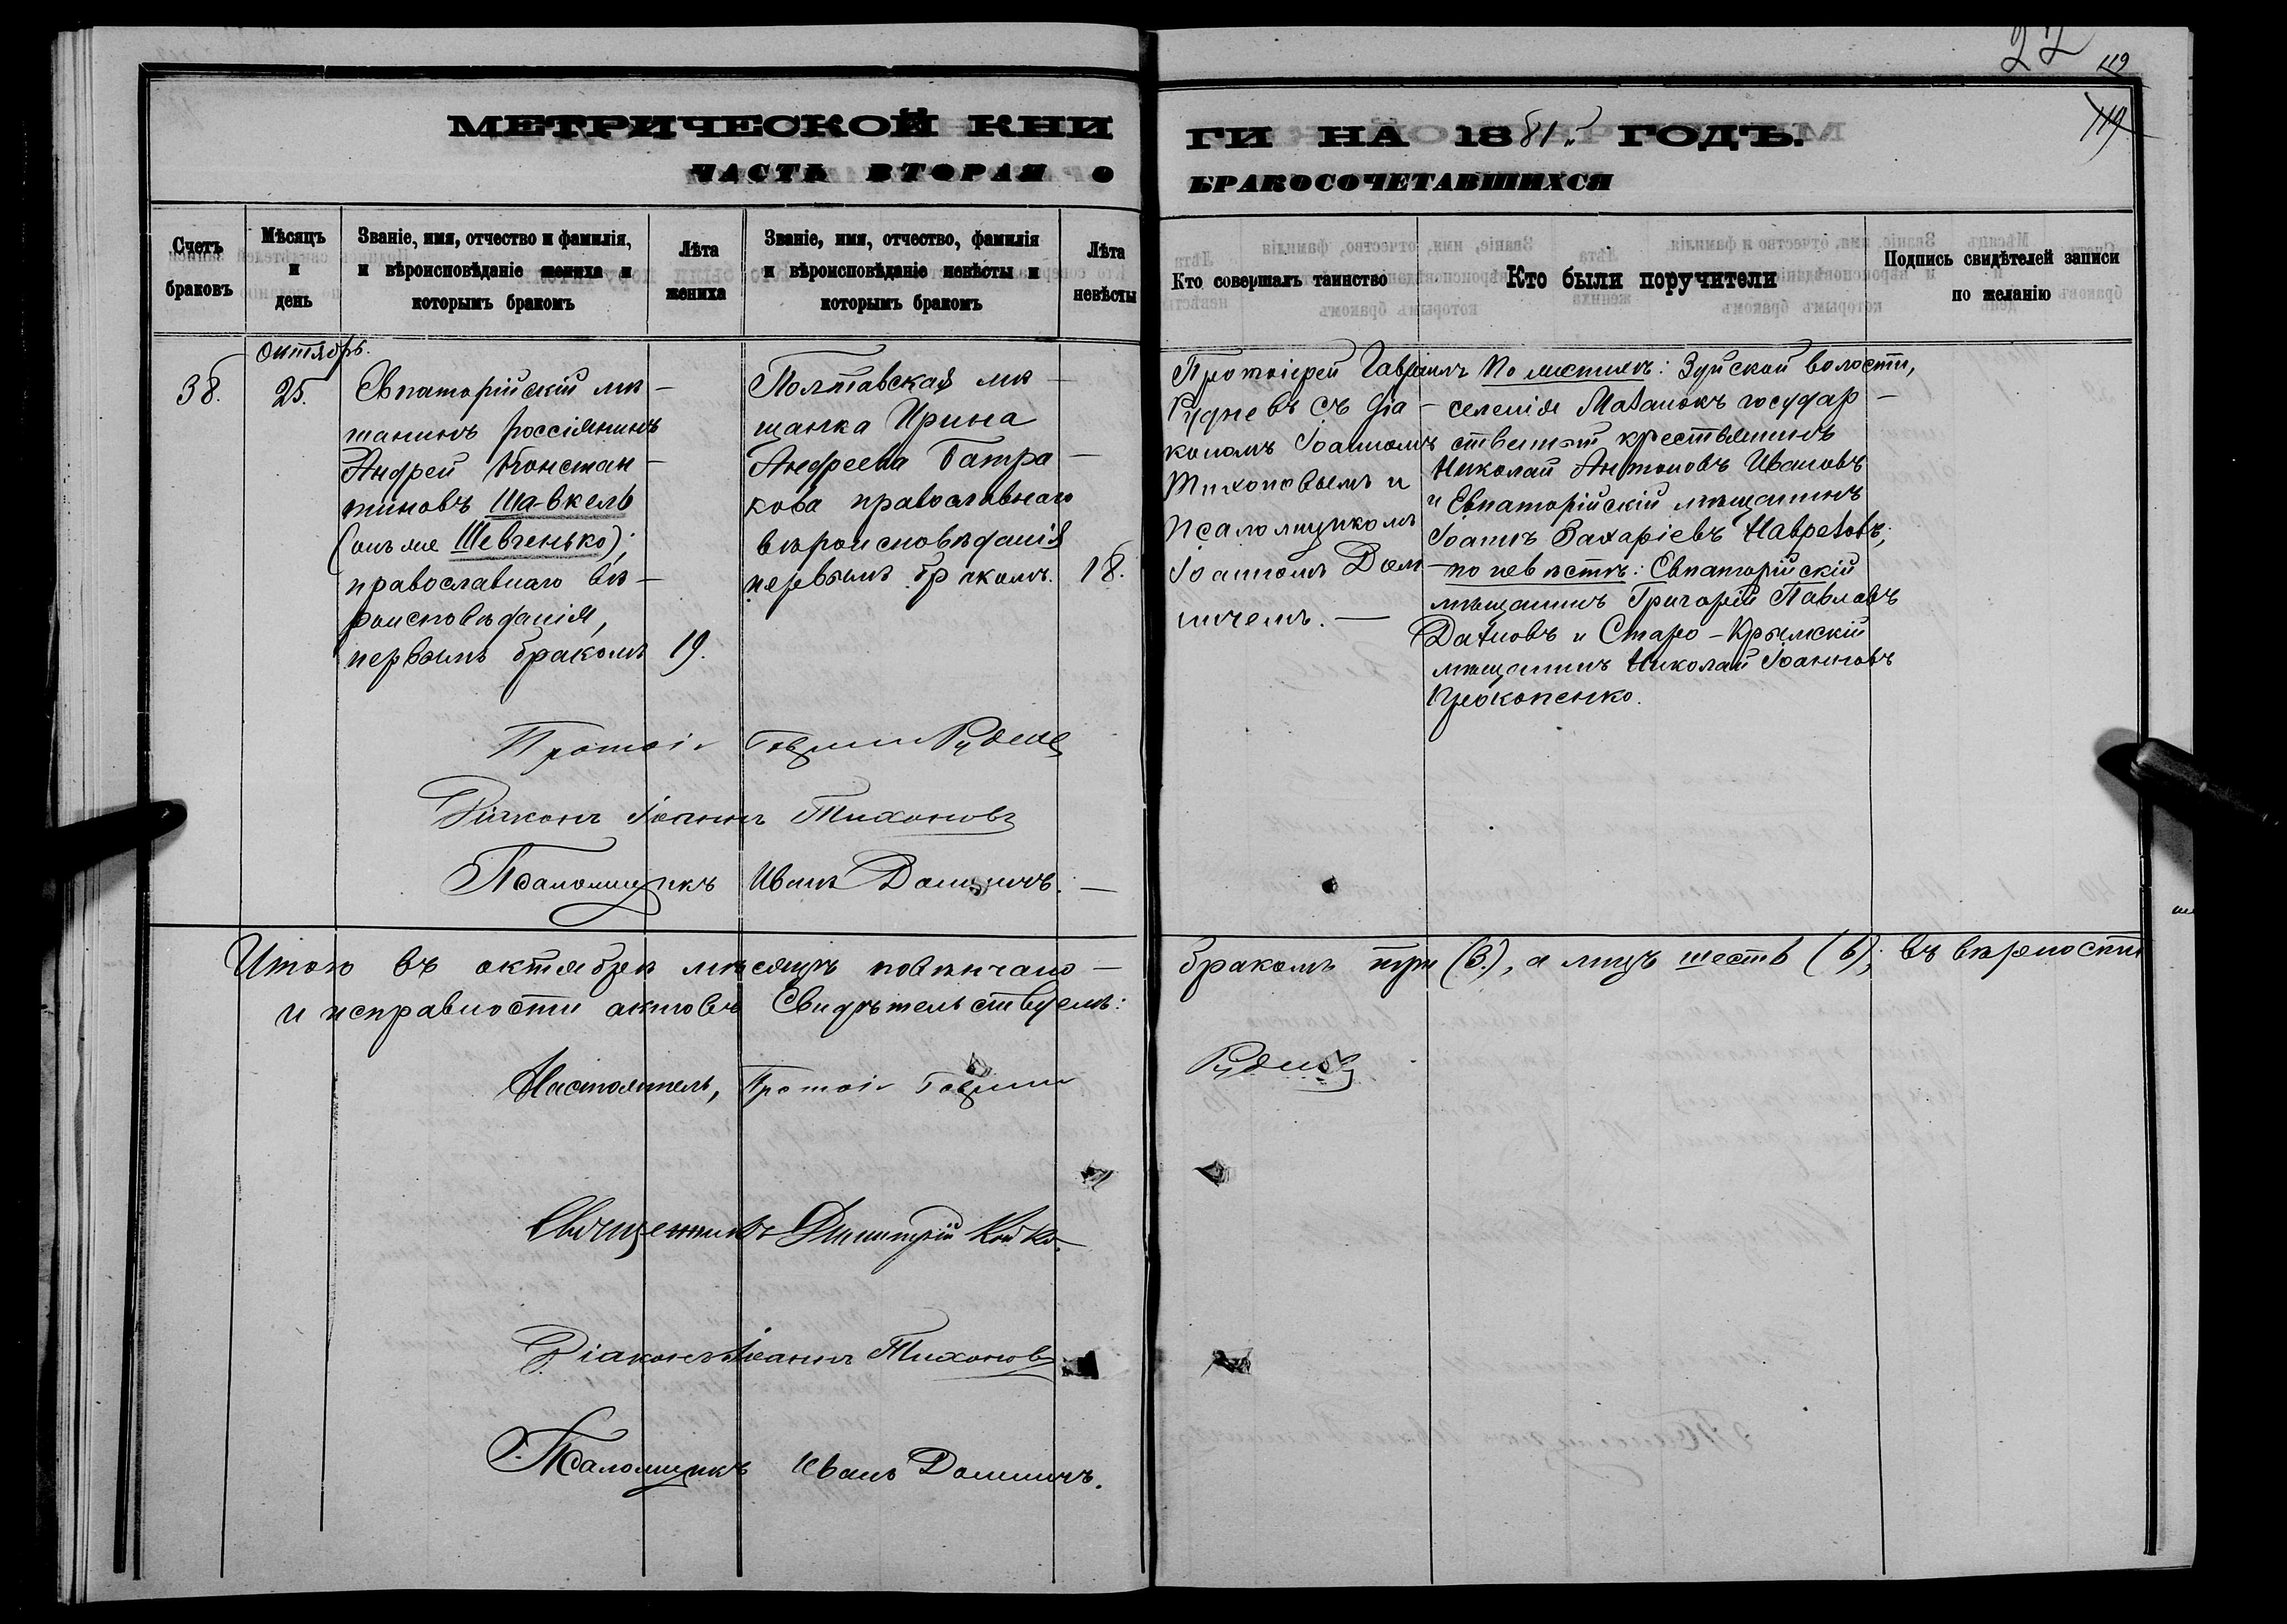 22
119
119
МЕТРИЧЕСКОЙ КНИ
ГИ НА 1881й ГОДЪ.
ЧАСТЬ ВТОРАЯ О
БРАКОСОЧЕТАВШИХСЯ
Счетъ браковъ
Мѣсяцъ и день
Званіе, имя, отчество и фамилія,
и вѣроисповѣданіе жениха и
которымъ бракомъ
Лѣта
жениха
Званіе, имя, отчество, фамилія
и вѣроисповѣданіе невѣсты и
которымъ бракомъ
Лѣта
невѣсты
Кто совершалъ таинство
Кто были поручители
Подпись свидѣтелей записи
по желанію
38.
Октябрь.
25.
Евпаторійскій мѣ-
щанинъ россіянинъ
Андрей Констан-
тиновъ Ша-вкель
(онъ же Шевченько);
православнаго вѣ-
роисповѣданія,
первымъ бракомъ
19.
Полтавская мѣ-
щанка Ирина
Андреева Батра-
кова православнаго
вѣроисповѣданія
первымъ бракомъ.
18.
Протоіерей Гавріилъ
Рудневъ съ діа-
кономъ Іоанномъ
Тихоновымъ и
псаломщикомъ
Іоанномъ Дом-
ничемъ.—
По женихѣ: Зуйской волости,
селенія Мазанокъ государ-
ственный крестьянинъ
Николай Антоновъ Ивановъ
и Евпаторійскій мѣщанинъ
Іоаннъ Захаріевъ
-по невѣстѣ: Евпаторійскій
мѣщанинъ Григорій Павловъ
и Старо-Крымскій
мѣщанинъ Николай Іоанновъ
Прокопенко.
Протоі. Гавріилъ Рудневъ
Діаконъ Іоаннъ Тихоновъ
Псаломщикъ Иванъ Домничъ.—
Итого въ октябрѣ мѣсяцѣ повѣнчано-
бракомъ три (3.), а лицъ шесть (6); въ вѣрности
и исправности актовъ свидѣтельствуемъ:
Настоятель, Протоі. Гавріилъ
Рудневъ
Священникъ Димитрій
Діаконъ Іоаннъ Тихоновъ
Псаломщикъ Иванъ Домничъ.